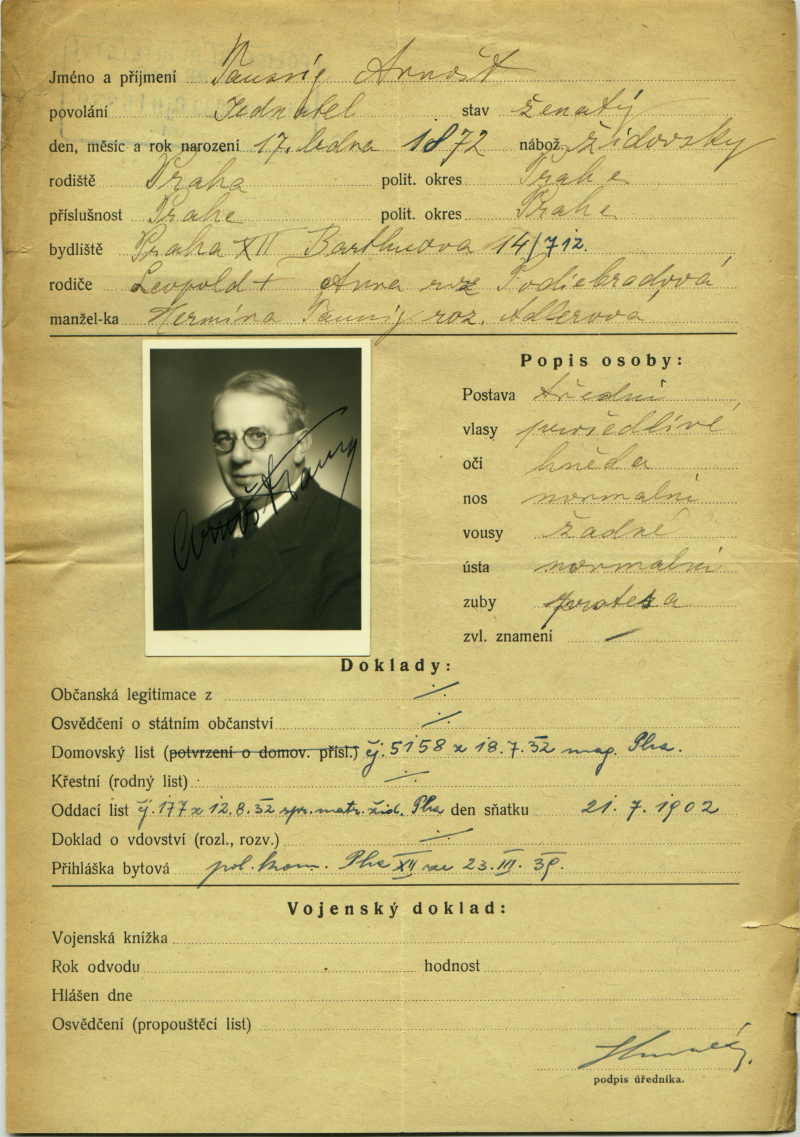 Jméno a příjmení Taussig Arnošt
povolání Jednatel stav ženatý
den, měsíc a rok narození 17. ledna 1872 nábož. židovsky
rodiště Praha polit. okres Praha
příslušnost Praha polit. okres Praha
bydliště Praha XII Barthusova 14/712.
rodiče Leopold + Anna roz Podiebradová
manžel-ka Hermína Taussig roz. Adlerová
Popis osoby:
Postava střední
vlasy prošedlivé
oči hněda
nos normalní
vousy žadné
ústa normalní
zuby proteza
zvl. znamení —
Arnošt Taussig
Doklady:
Občanská legitimace z ./.
Osvědčení o státním občanství ./.
Domovský list (potvrzení o domov. přísl.) čj. 5158 z 18.7.32 mag. Pha.
Křestní (rodný list) ./.
Oddací list čj. 177 z 12.8.32 spr. matr. žid. Pha den sňatku 21.7.1902
Doklad o vdovství (rozl., rozv.) ./.
Přihláška bytová pol. kom. Pha XII ze 23.III.39.
Vojenský doklad:
Vojenská knížka
Rok odvodu hodnost
Hlášen dne
Osvědčení (propouštěcí list)
podpis úředníka.